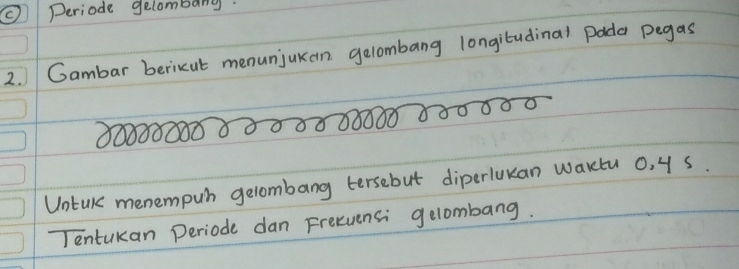 (c) Periode gelombang.
2. Gambar berikut menunjukan gelombang longitudinal pada pegas
Untuk menempuh gelombang tersebut diperlukan waktu 0,4 s.
Tentukan Periode dan Frekuensi gelombang.